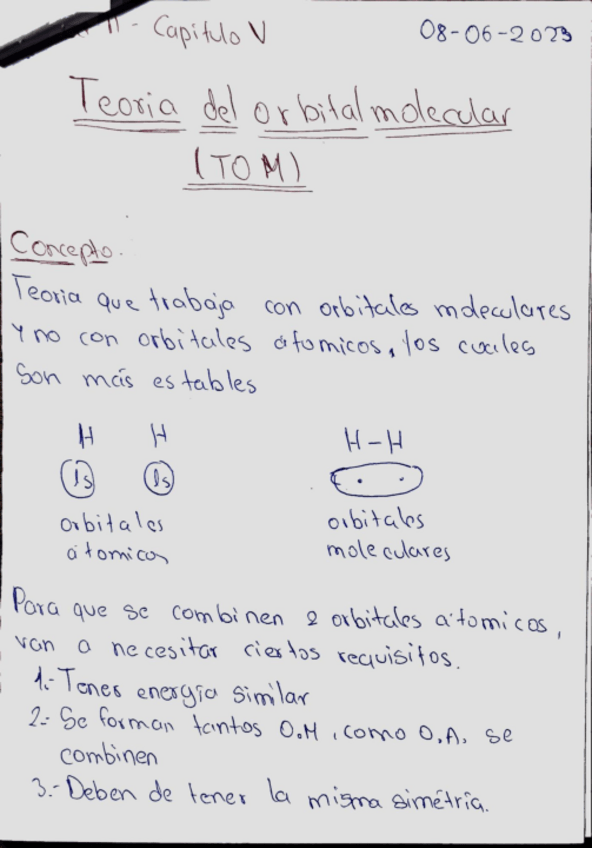 - Capitulo V
08-06-2023
Teoria del orbital molecular
(TOM)
Concepto.
Teoria que trabaja con orbitales moleculares
y no con orbitales átomicos, los cuales
son más estables
H H
H-H
1s 1s
orbitales
átomicos
orbitales
moleculares
Para que se combinen 2 orbitales átomicos,
van a necesitar ciertos requisitos.
1.- Tener energía similar
2.- Se forman tantos O.M, como O.A. se
combinen
3.- Deben de tener la misma simétría.